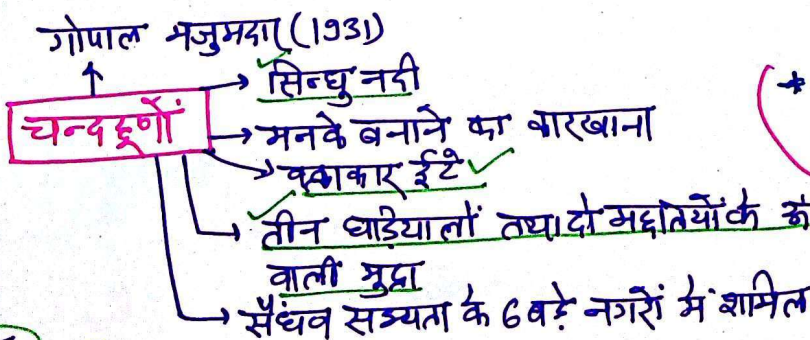 गोपाल मजुमदार (1931)
सिन्धु नदी
चन्दहूणों
मनके बनाने का कारखाना
वक्राकार ईटे
तीन घड़ियालों तथा दो मछलियों के
वाली मुद्रा
सैंधव सभ्यता के 6 बड़े नगरों में शामिल